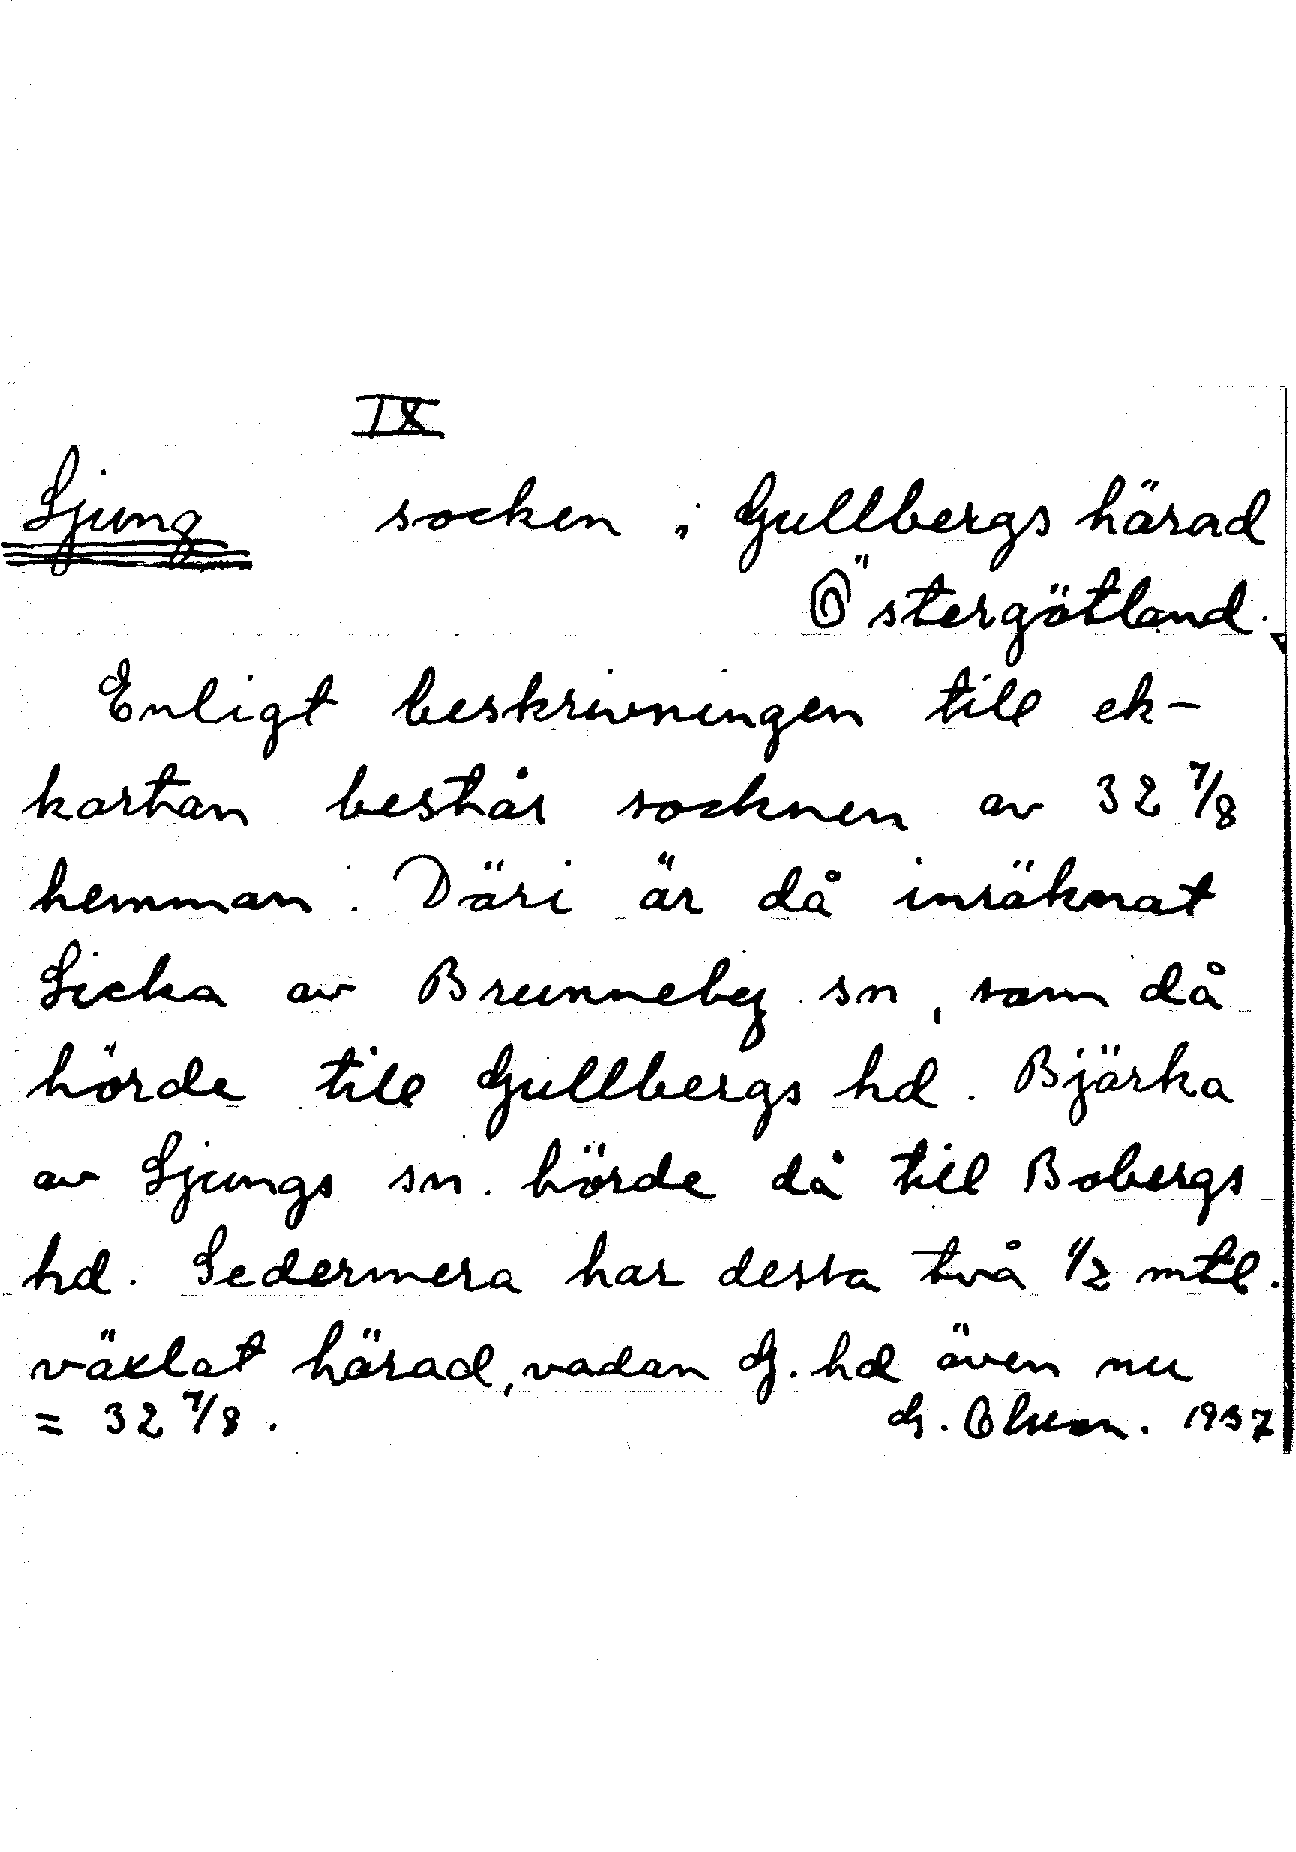 IX
Ljung socken i Gullbergs härad
Östergötland.
Enligt beskrivningen till ek-
kartan består socknen av 32 7/8
hemman. Däri är då inräknat
Licka av Brunneby sn, som då
hörde till Gullbergs hd. Bjärka
av Ljungs sn. hörde då till Bobergs
hd. Sedermera har dessa två 1/2 mtl.
växlat härad, vadan G. hd även nu
= 32 7/8. G. Olson. 1937